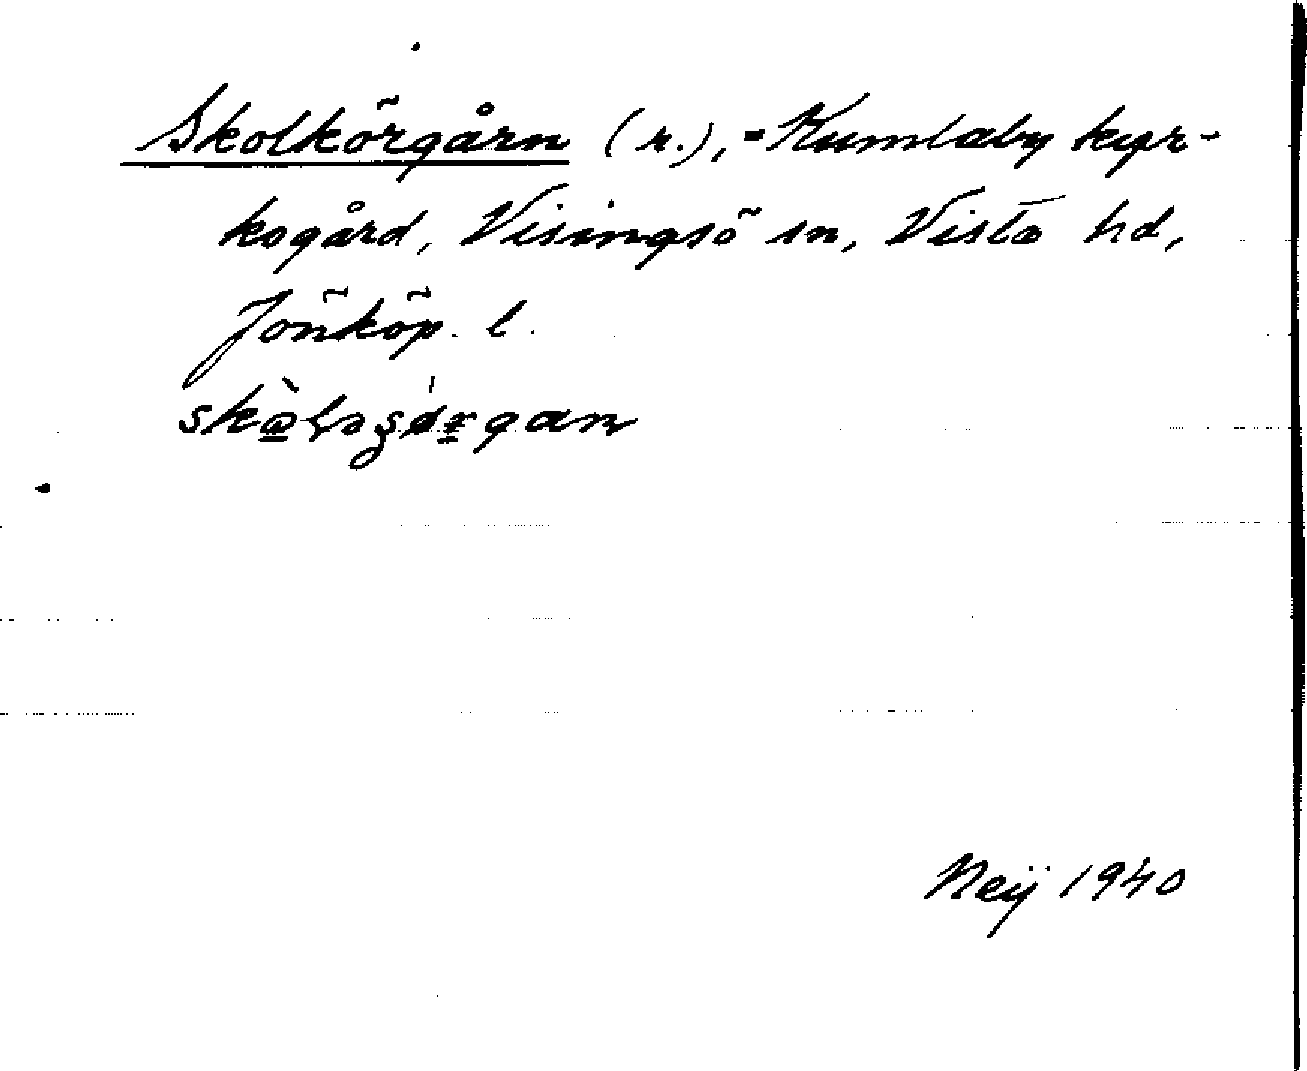 Skolkörgårn (r.), = Kumlaby kyr-
kogård, Visingsö sn, Vista hd,
Jönköp. l.
Neij 1940